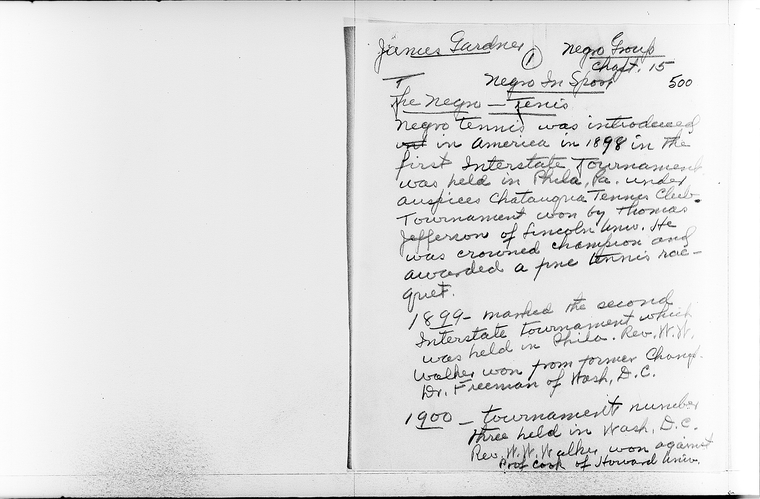 James Gardner ① Negro Group
Chapt. 15
Negro In Sport 500
The Negro — Tenis
Negro tennis was introduced
in America in 1898 in the
first Interstate Tournament
was held in Phila, Pa. under
auspices Chatauqua Tennis Club.
Tournament won by Thomas
Jefferson of Lincoln Univ. He
was crowned champion and
awarded a fine tennis rac-
quet.
1899 - marked the second
Interstate tournament which
was held in Phila. Rev. W.W.
Walker won from former Champ.
Dr. Freeman of Wash, D.C.
1900 - tournament number
three held in Wash, D.C.
Rev. W.W. Walker won against
Prof Cook of Howard Univ.